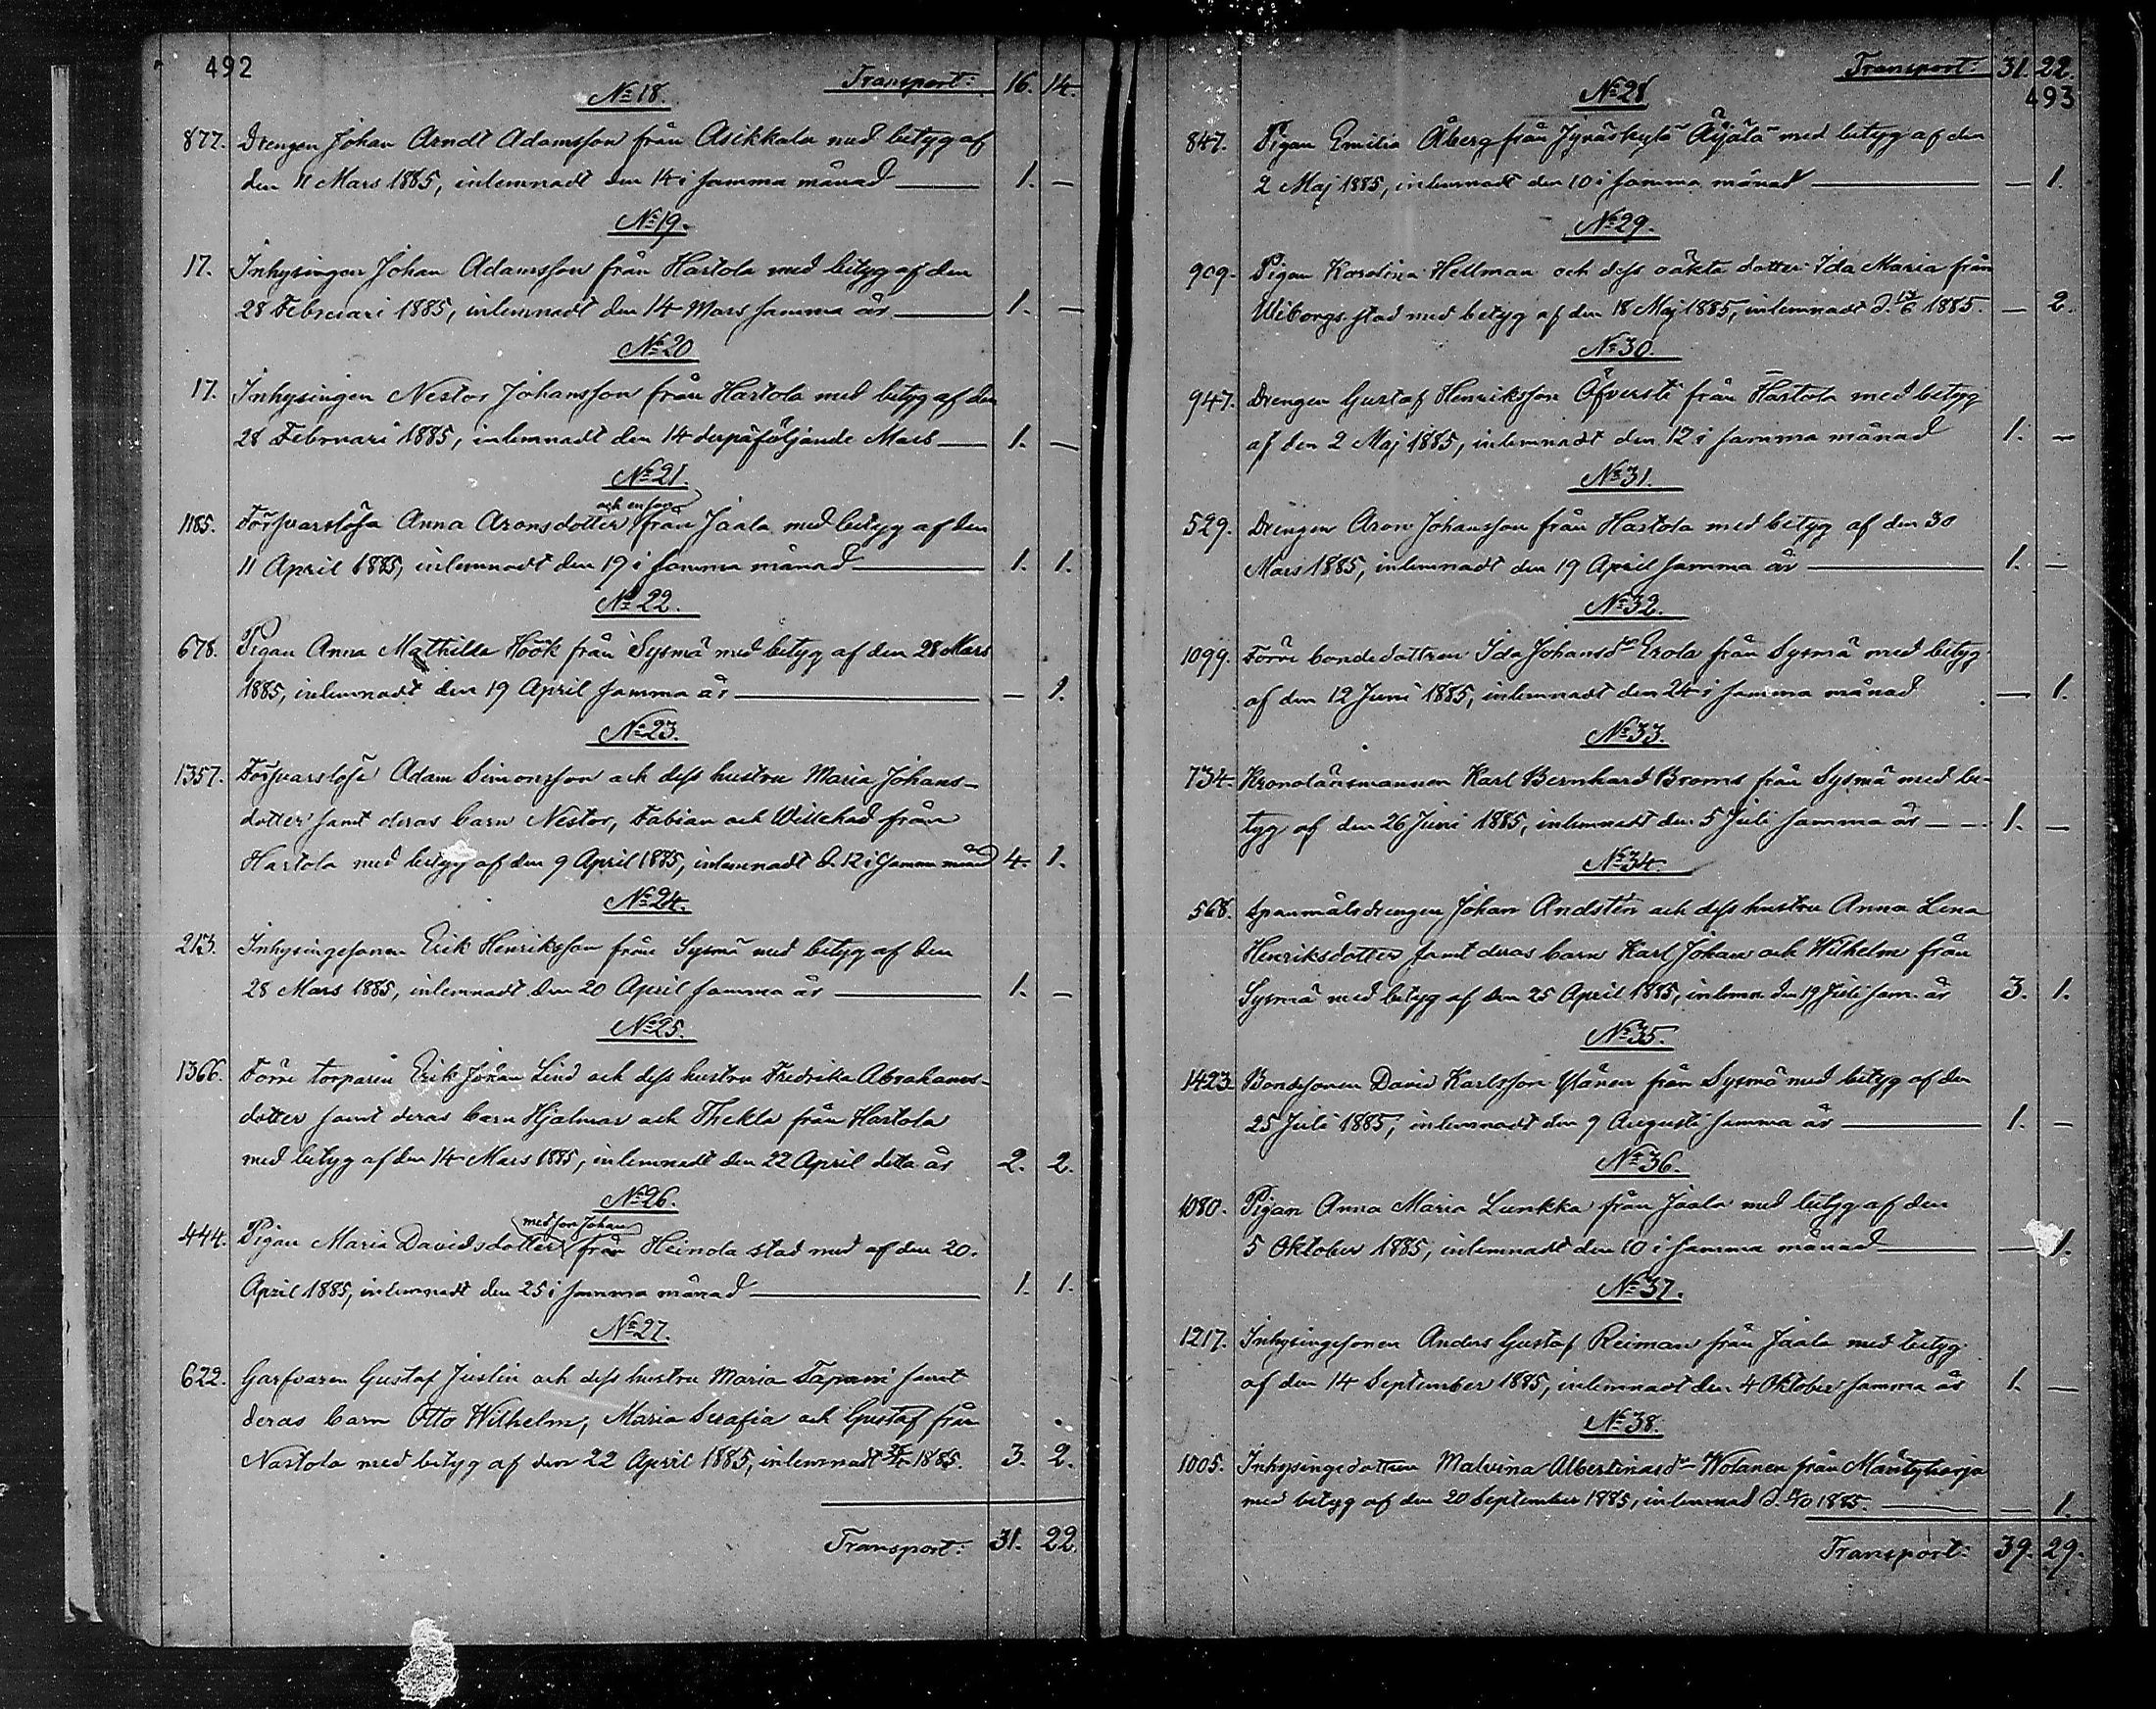 492
Transport: 16. 14.
No 18.
877. Drengen Johan Arndt Adamsson från Asikkala med betyg af
den 11 Mars 1885, inlemnadt den 14 i samma månad 1. —
No 19.
17. Inhysingen Johan Adamsson från Hartola med betyg af den
28 Februari 1885, inlemnadt den 14 Mars samma år 1. —
No 20
17. Inhysingen Nestor Johansson från Hartola med betyg af den
28 Februari 1885, inlemnadt den 14 derpåföljande Mars 1. —
No 21.
och en son
1185. Försvarslösa Anna Aronsdotter från Jaala med betyg af den
11 April 1885, inlemnadt den 19 i samma månad 1. 1.
No 22.
678. Pigan Anna Mathilda Höök från Sysmä med betyg af den 28 Mars
1885, inlemnadt den 19 April samma år — 1.
No 23.
1357. Försvarslöse Adam Simonsson och dess hustru Maria Johans-
dotter samt deras barn Nestor, Fabian och Willehad från
Hartola med betyg af den 9 April 1885, inlemnadt d. 12 i samma månad 4. 1.
No 24.
213. Inhysingesonen Erik Henriksson från Sysmä med betyg af den
28 Mars 1885, inlemnadt den 20 April samma år 1. —
No 25.
1366. Förre torparen Erik Johan Lind och dess hustru Fredrika Abrahams-
dotter samt deras barn Hjalmar och Thekla från Hartola
med betyg af den 14 Mars 1885, inlemnadt den 22 April detta år 2. 2.
No 26.
med son Johan
444. Pigan Maria Davidsdotter från Heinola stad med af den 20.
April 1885, inlemnadt den 25 i samma månad 1. 1.
No 27.
622. Garfvaren Gustaf Juslin och dess hustru Maria Tapani samt
deras barn Otto Wilhelm, Maria Serafia och Gustaf från
Nastola med betyg af den 22 April 1885, inlemnadt 1885. 3. 2.
Transport: 31. 22.
Transport: 31. 22.
493
No 28
847. Pigan Emilia Åberg från Jyväskylä Äijälä med betyg af den
2 Maj 1885, inlemnadt den 10 i samma månad — 1.
No 29.
909. Pigan Karolina Hellman och dess oäkta dotter Ida Maria från
Wiborgs stad med betyg af den 18 Maj 1885, inlemnadt d. 1885. — 2.
No 30.
947. Drengen Gustaf Henriksson Öfversti från Hartola med betyg
af den 2 Maj 1885, inlemnadt den 12 i samma månad 1. —
No 31.
529. Drengen Aron Johansson från Hartola med betyg af den 30
Mars 1885, inlemnadt den 19 April samma år 1. —
No 32.
1099. Förre bondedottren Ida Johansdr Erola från Sysmä med betyg
af den 12 Juni 1885, inlemnadt den 24 i samma månad — 1.
No 33.
734. Kronolänsmannen Karl Bernhard Broms från Sysmä med be-
tyg af den 26 Juni 1885, inlemnadt den 5 Juli samma år 1. —
No 34.
568. Spanmålsdrengen Johan Andstén och dess hustru Anna Lena
Henriksdotter samt deras barn Karl Johan och Wilhelm från
Sysmä med betyg af den 25 April 1885, inlemn. den 19 Juli sam. år 3. 1.
No 35.
1423. Bondesonen David Karlsson Ylänen från Sysmä med betyg af den
25 Juli 1885, inlemnadt den 9 Augusti samma år 1. —
No 36.
1080. Pigan Anna Maria Lunkka från Jaala med betyg af den
5 Oktober 1885, inlemnadt den 10 i samma månad — 1.
No 37.
1217. Inhysingesonen Anders Gustaf Reiman från Jaala med betyg
af den 14 September 1885, inlemnadt den 4 Oktober samma år 1. —
No 38.
1005. Inhysingedottren Malvina Albertinasdr Wotanen från Mäntyharju
med betyg af den 20 September 1885, inlemnad d. 1885. — 1.
Transport: 39. 29.